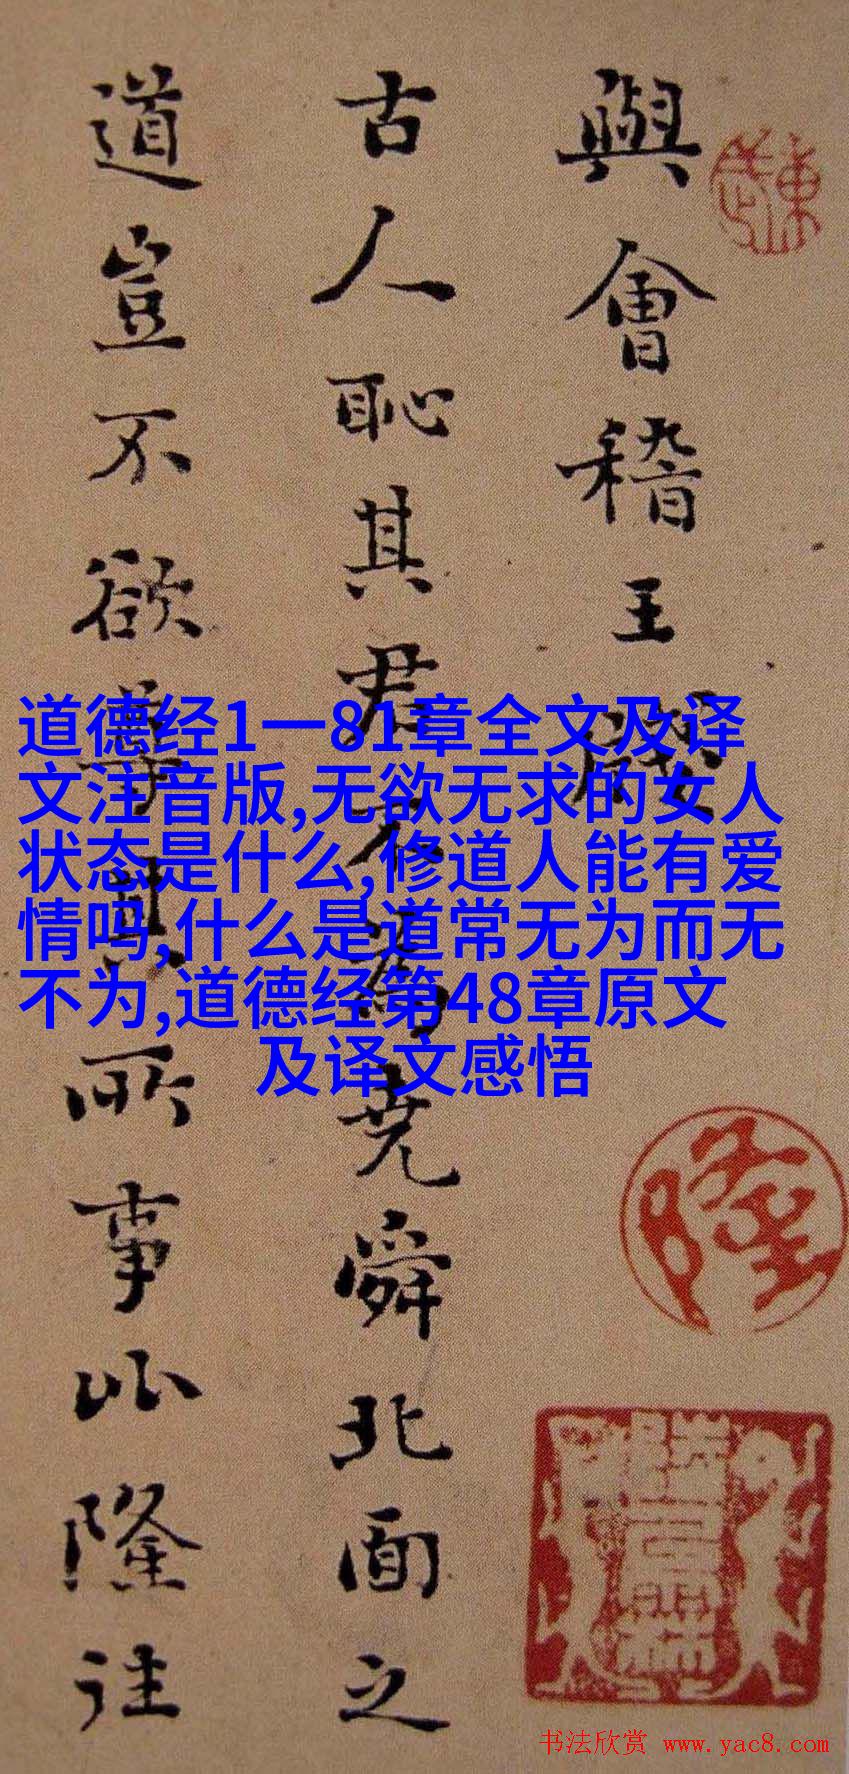 與會稽王牋
古人恥其君不為堯舜北面之
道豈不欲尊其所事比隆往
道德经1一81章全文及译
文注音版,无欲无求的女人
状态是什么,修道人能有爱
情吗,什么是道常无为而无
不为,道德经第48章原文
及译文感悟
隆
书法欣赏 www.yac8.com